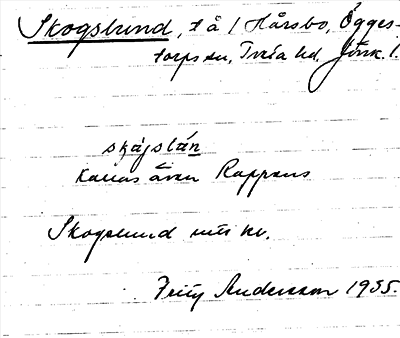 Skogslund, t å 1 Hårsbo, Ögges-
torps sn, Tveta hd, Jönk. l.
skọjslán
Kallas även Rappens
Skogslund enl. kr.
Fritz Andersson 1935.